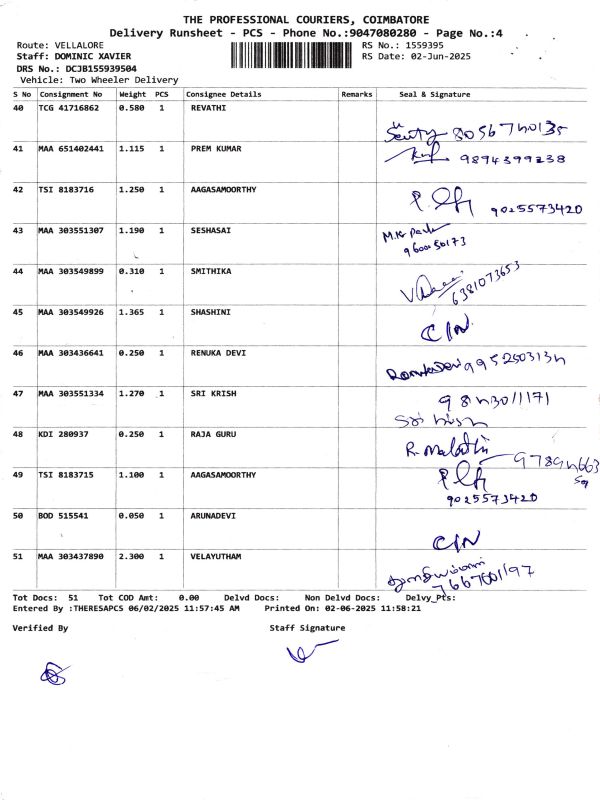 THE PROFESSIONAL COURIERS, COIMBATORE
Delivery Runsheet - PCS - Phone No.:9047080280 - Page No.:4
Route: VELLALORE RS No.: 1559395
Staff: DOMINIC XAVIER RS Date: 02-Jun-2025
DRS No.: DCJB155939504
Vehicle: Two Wheeler Delivery
S No Consignment No Weight PCS Consignee Details Remarks Seal & Signature
40 TCG 41716862 0.580 1 REVATHI
41 MAA 651402441 1.115 1 PREM KUMAR 9894399238
42 TSI 8183716 1.250 1 AAGASAMOORTHY 9025573420
43 MAA 303551307 1.190 1 SESHASAI
44 MAA 303549899 0.310 1 SMITHIKA 6381073653
45 MAA 303549926 1.365 1 SHASHINI
46 MAA 303436641 0.250 1 RENUKA DEVI
47 MAA 303551334 1.270 1 SRI KRISH
48 KDI 280937 0.250 1 RAJA GURU R. Malathi
49 TSI 8183715 1.100 1 AAGASAMOORTHY
9025573420
50 BOD 515541 0.050 1 ARUNADEVI
51 MAA 303437890 2.300 1 VELAYUTHAM
Tot Docs: 51 Tot COD Amt: 0.00 Delvd Docs: Non Delvd Docs: Delvy_Pts:
Entered By :THERESAPCS 06/02/2025 11:57:45 AM Printed On: 02-06-2025 11:58:21
Verified By Staff Signature